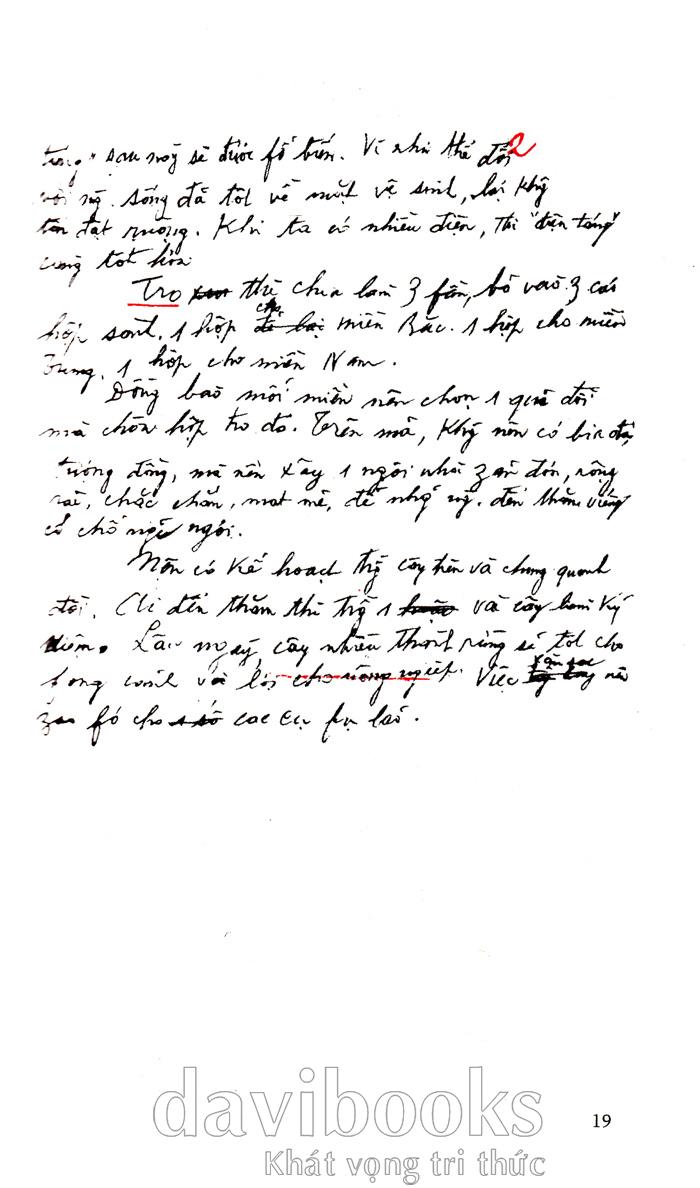 táng" sau này sẽ được fổ biến. Vì như thế đối 2
với ng. sống đã tốt về mặt vệ sinh, lại khg
tốn đất ruộng. Khi ta có nhiều điện, thì "điện táng"
càng tốt hơn
Tro thì chia làm 3 fần, bỏ vào 3 cái
hộp sành. 1 hộp cho miền Bắc. 1 hộp cho miền
Trung. 1 hộp cho miền Nam.
Đồng bào mỗi miền nên chọn 1 quả đồi
mà chôn hộp tro đó. Trên mả, khg nên có bia đá,
tượng đồng, mà nên xây 1 ngôi nhà zản đơn, rộng
rãi, chắc chắn, mát mẻ, để nhg ng. đến thăm viếng
có chỗ nghỉ ngơi.
Nên có kế hoạch trg cây trên và chung quanh
đồi. Ai đến thăm thì trg 1 vài cây làm kỷ
niệm. Lâu ngày, cây nhiều thành rừng sẽ tốt cho
fong cảnh và lợi cho nông ngiệp. Việc săn sóc nên
zao fó cho các cụ fụ lão.
davibooks
19
Khát vọng tri thức